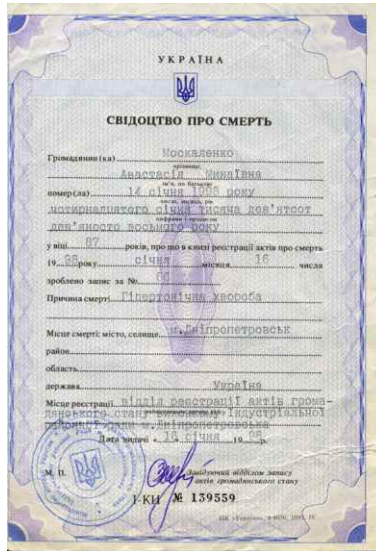 УКРАЇНА
СВІДОЦТВО ПРО СМЕРТЬ
Громадянин(ка) Москаленко
прізвище,
Анастасія Минаївна
ім'я, по батькові
помер(ла) 14 січня 1998 року
число, місяць, рік
чотирнадцятого січня тисяча дев'ятсот
цифрами і прописом
дев'яносто восьмого року
у віці 87 років, про що в книзі реєстрації актів про смерть
19 98 року січня місяця 16 числа
зроблено запис за №
Причина смерті Гіпертонічна хвороба
Місце смерті: місто, селище м.Дніпропетровськ
район
область
держава Україна
Місце реєстрації відділ реєстрації актів грома-
дянського стану Індустріальної
районної ради м.Дніпропетровська
Дата видачі « 16 січня 19 98 р.
М. П. Завідуючий відділом запису
актів громадянського стану
I-КИ № 139559